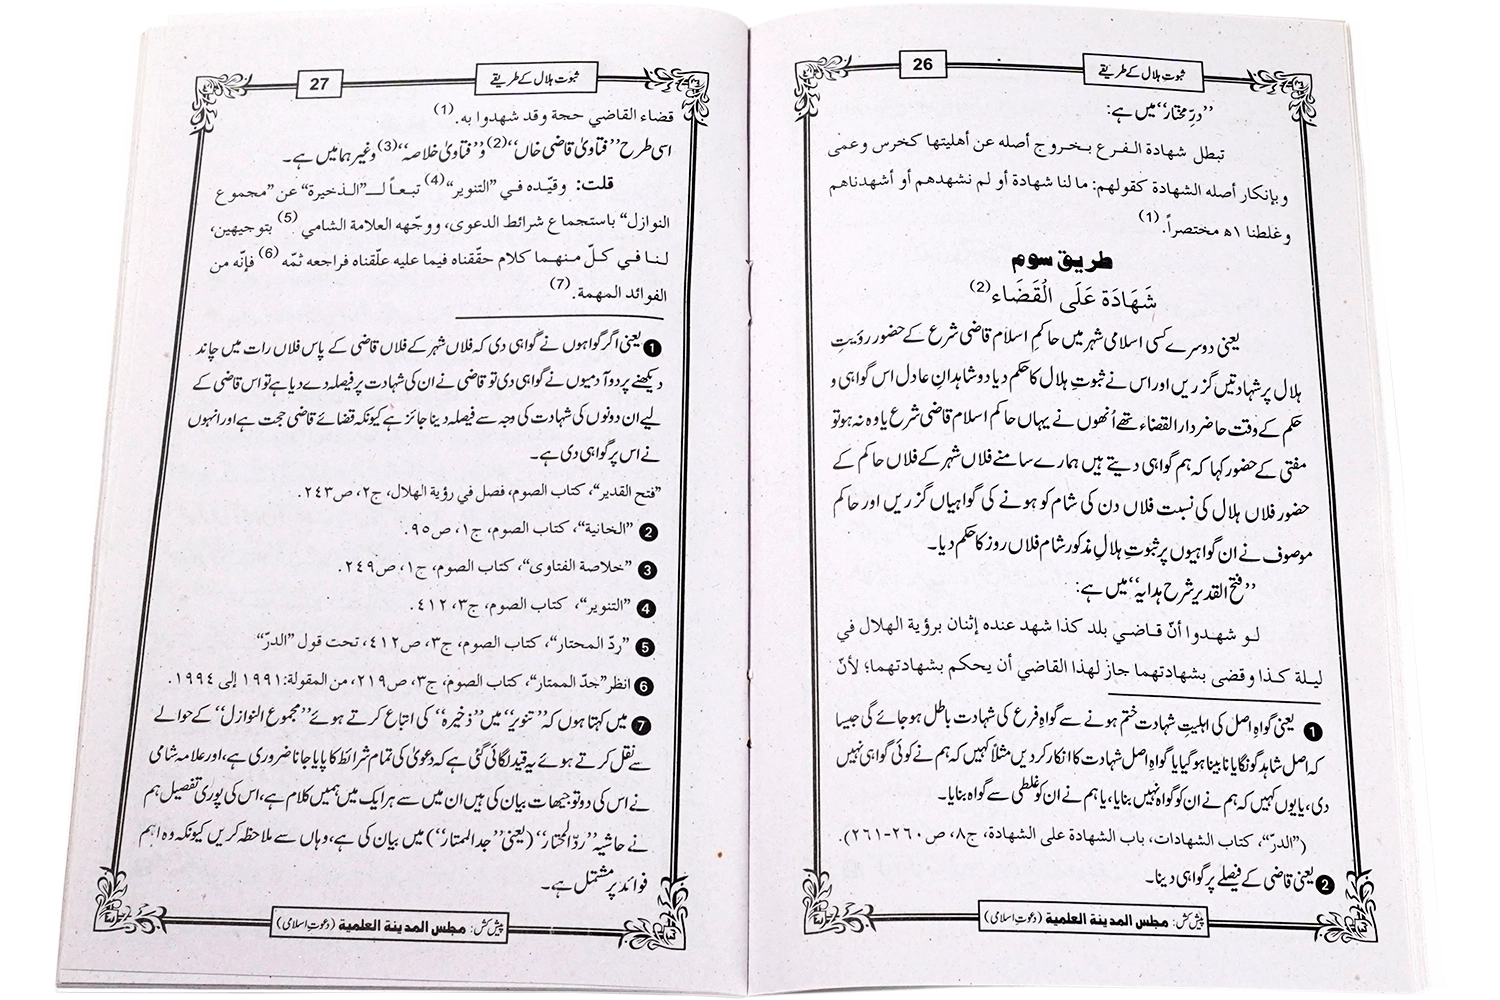 ثبوت ہلال کے طریقے
26
’’درِّ مختار‘‘ میں ہے:
تبطل شهادة الفرع بخروج أصله عن أهليتها كخرس وعمى
وبإنكار أصله الشهادة كقولهم: ما لنا شهادة أو لم نشهدهم أو أشهدناهم
وغلطنا ١ھ مختصراً. (1)
طریق سوم
شَهَادَة عَلَى الْقَضَاء (2)
یعنی دوسرے کسی اسلامی شہر میں حاکمِ اسلام قاضیٔ شرع کے حضور رؤیتِ
ہلال پر شہادتیں گزریں اور اس نے ثبوتِ ہلال کا حکم دیا دو شاہدانِ عادل اس گواہی و
حکم کے وقت حاضر دار القضاء تھے اُنھوں نے یہاں حاکم اسلام قاضی شرع یا وہ نہ ہو تو
مفتی کے حضور کہا کہ ہم گواہی دیتے ہیں ہمارے سامنے فلاں شہر کے فلاں حاکم کے
حضور فلاں ہلال کی نسبت فلاں دن کی شام کو ہونے کی گواہیاں گزریں اور حاکم
موصوف نے ان گواہیوں پر ثبوتِ ہلالِ مذکور شام فلاں روز کا حکم دیا۔
’’فتح القدیر شرح ہدایہ‘‘ میں ہے:
لو شهدوا أنّ قاضي بلد كذا شهد عنده إثنان برؤية الهلال في
ليلة كذا وقضى بشهادتهما جاز لهذا القاضي أن يحكم بشهادتهما؛ لأنّ
1 یعنی گواہِ اصل کی اہلیتِ شہادت ختم ہونے سے گواہِ فرع کی شہادت باطل ہوجائے گی جیسا
کہ اصل شاہد گونگا یا نابینا ہوگیا یا گواہِ اصل شہادت کا انکار کردیں مثلاً کہیں کہ ہم نے کوئی گواہی نہیں
دی، یا یوں کہیں کہ ہم نے ان کو گواہ نہیں بنایا، یا ہم نے ان کو غلطی سے گواہ بنایا۔
(”الدرّ“، كتاب الشهادات، باب الشهادة على الشهادة، ج٨، ص٢٦٠-٢٦١).
2 یعنی قاضی کے فیصلے پر گواہی دینا۔
پیش کش: مجلس المدينة العلمية (دعوتِ اسلامی)
ثبوت ہلال کے طریقے
27
قضاء القاضي حجة وقد شهدوا به. (1)
اسی طرح ’’فتاویٰ قاضی خاں‘‘ (2) و’’فتاویٰ خلاصہ‘‘ (3) وغیرہما میں ہے۔
قلت: وقيّده في ”التنوير“ (4) تبعاً لـ”الذخيرة“ عن ”مجموع
النوازل“ باستجماع شرائط الدعوى، ووجّهه العلامة الشامي (5) بتوجيهين،
لنا في كلّ منهما كلام حقّقناه فيما عليه علّقناه فراجعه ثمّه (6) فإنّه من
الفوائد المهمة. (7)
1 یعنی اگر گواہوں نے گواہی دی کہ فلاں شہر کے فلاں قاضی کے پاس فلاں رات میں چاند
دیکھنے پر دو آدمیوں نے گواہی دی تو قاضی نے ان کی شہادت پر فیصلہ دے دیا ہے تو اس قاضی کے
لیے ان دونوں کی شہادت کی وجہ سے فیصلہ دینا جائز ہے کیونکہ قضائے قاضی حجت ہے اور انہوں
نے اس پر گواہی دی ہے۔
”فتح القدير“، كتاب الصوم، فصل في رؤية الهلال، ج٢، ص٢٤٣.
2 ”الخانية“، كتاب الصوم، ج١، ص٩٥.
3 ”خلاصة الفتاوى“، كتاب الصوم، ج١، ص٢٤٩.
4 ”التنوير“، كتاب الصوم، ج٣، ٤١٢.
5 ”ردّ المحتار“، كتاب الصوم، ج٣، ص٤١٢، تحت قول ”الدرّ“
6 انظر ”جدّ الممتار“، كتاب الصوم، ج٣، ص٢١٩، من المقولة: ١٩٩١ إلى ١٩٩٤.
7 میں کہتا ہوں کہ ’’تنویر‘‘ میں ’’ذخیرہ‘‘ کی اتباع کرتے ہوئے ’’مجموع النوازل‘‘ کے حوالے
سے نقل کرتے ہوئے یہ قید لگائی گئی ہے کہ دعویٰ کی تمام شرائط کا پایا جانا ضروری ہے، اور علامہ شامی
نے اس کی دو توجیہات بیان کی ہیں ان میں سے ہر ایک میں ہمیں کلام ہے، اس کی پوری تفصیل ہم
نے حاشیہ ’’ردّ المحتار‘‘ (یعنی ’’جد الممتار‘‘) میں بیان کی ہے، وہاں سے ملاحظہ کریں کیونکہ وہ اہم
فوائد پر مشتمل ہے۔
پیش کش: مجلس المدينة العلمية (دعوتِ اسلامی)